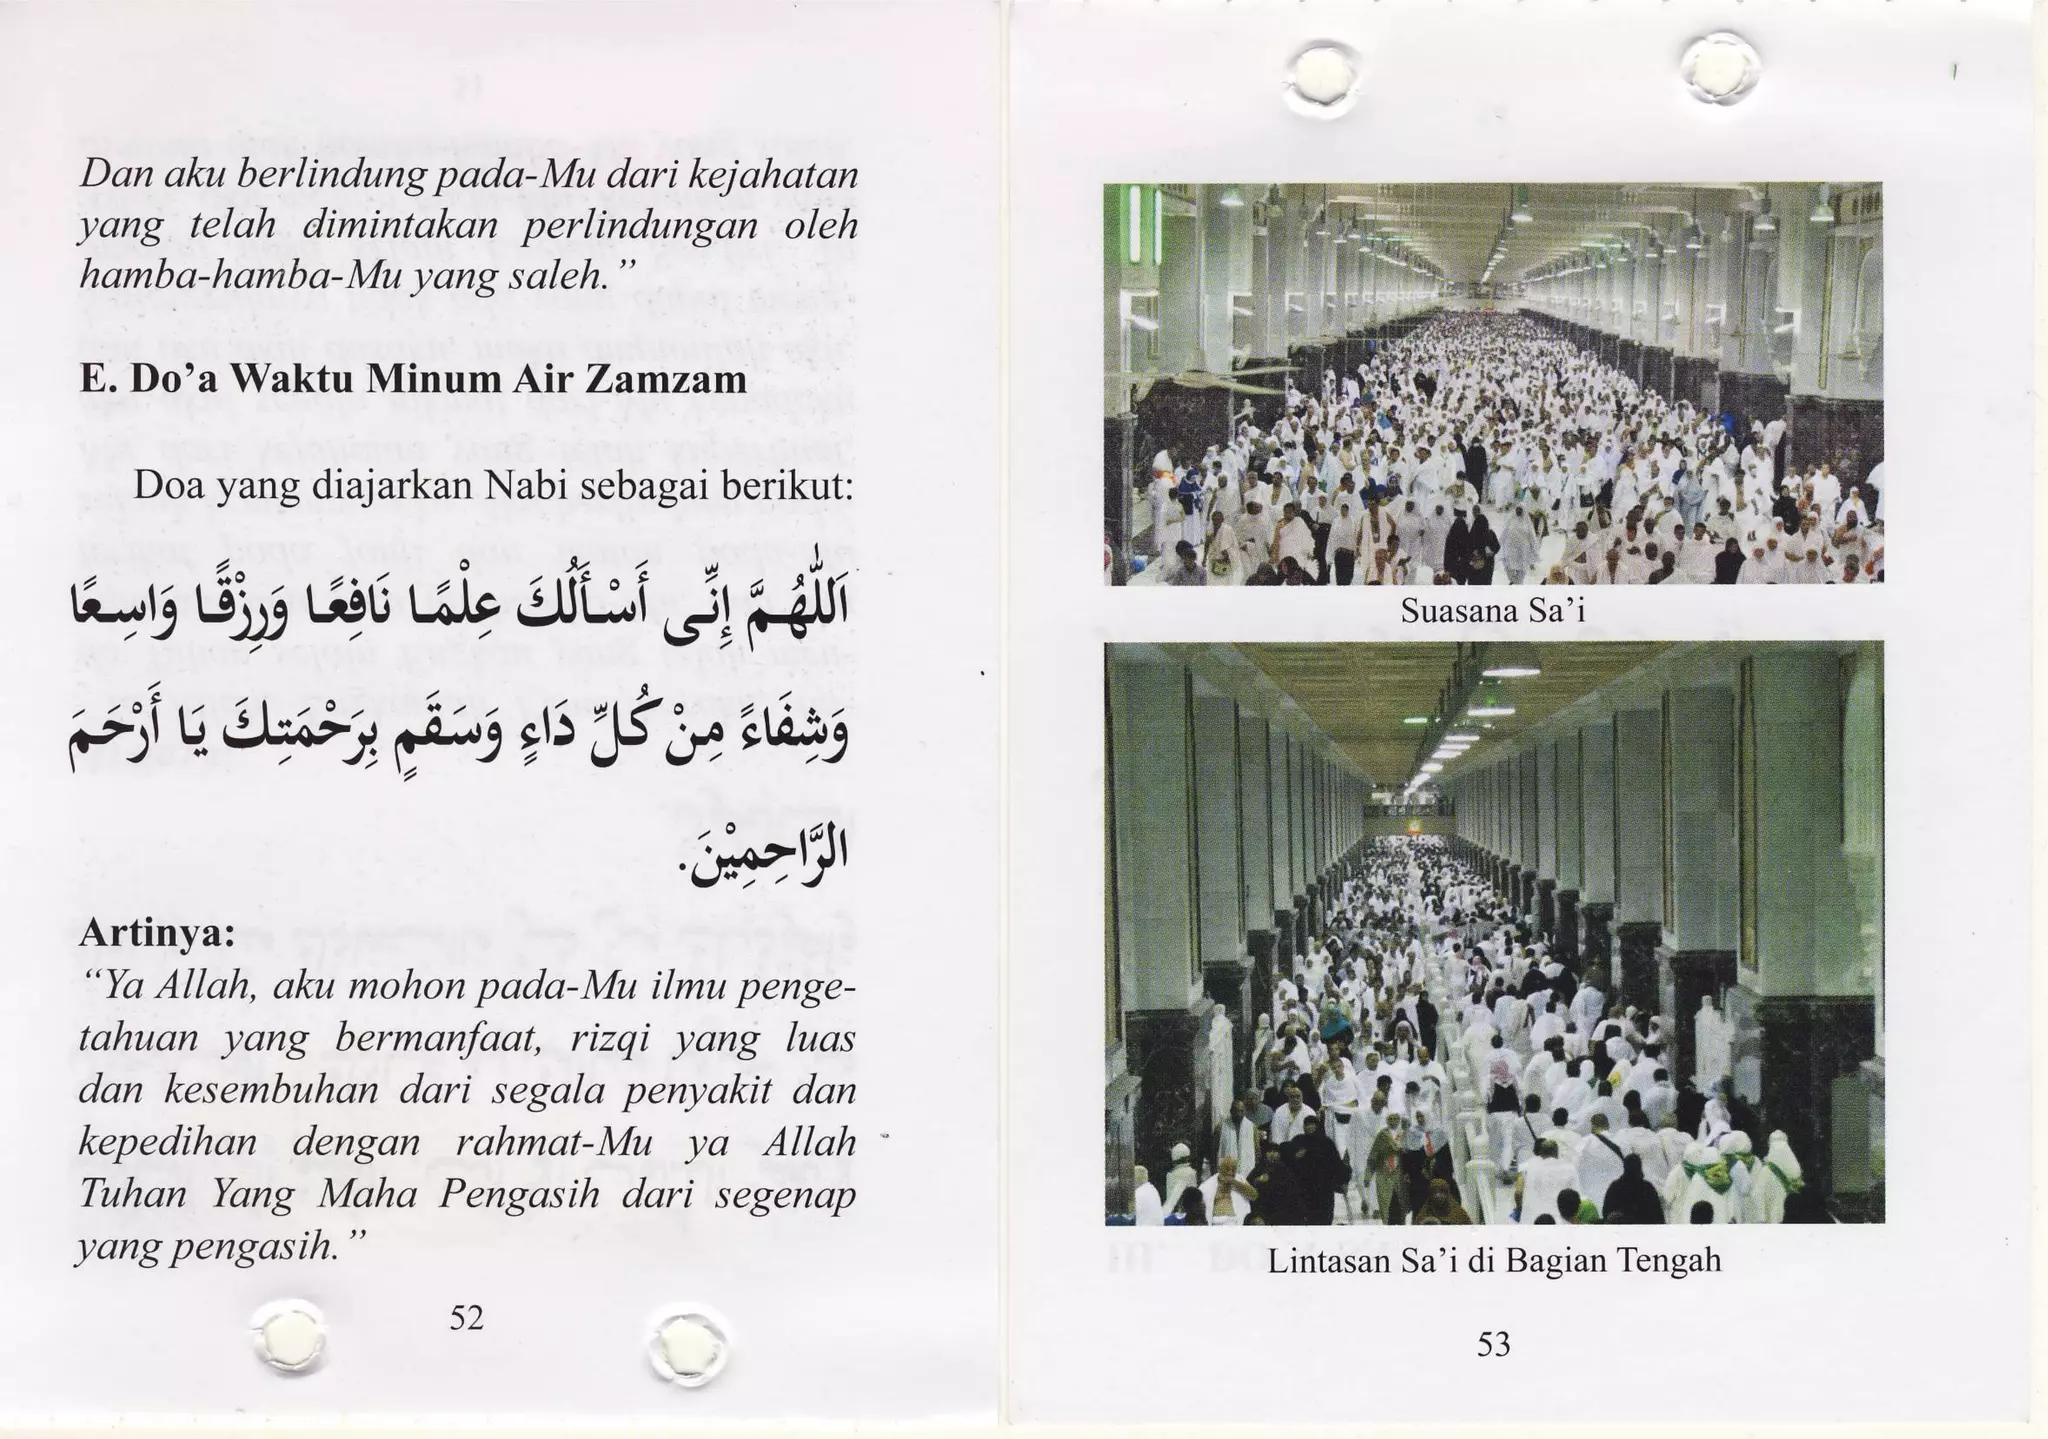 Dan aku berlindung pada-Mu dari kejahatan
yang telah dimintakan perlindungan oleh
hamba-hamba-Mu yang saleh.”
E. Do’a Waktu Minum Air Zamzam
Doa yang diajarkan Nabi sebagai berikut:
اَللّٰهُمَّ إِنِّى أَسْأَلُكَ عِلْمًا نَافِعًا وَرِزْقًا وَاسِعًا
وَشِفَاءً مِنْ كُلِّ دَاءٍ وَسَقَمٍ بِرَحْمَتِكَ يَا أَرْحَمَ
الرَّاحِمِيْنَ.
Artinya:
“Ya Allah, aku mohon pada-Mu ilmu penge-
tahuan yang bermanfaat, rizqi yang luas
dan kesembuhan dari segala penyakit dan
kepedihan dengan rahmat-Mu ya Allah
Tuhan Yang Maha Pengasih dari segenap
yang pengasih.”
52
Suasana Sa’i
Lintasan Sa’i di Bagian Tengah
53